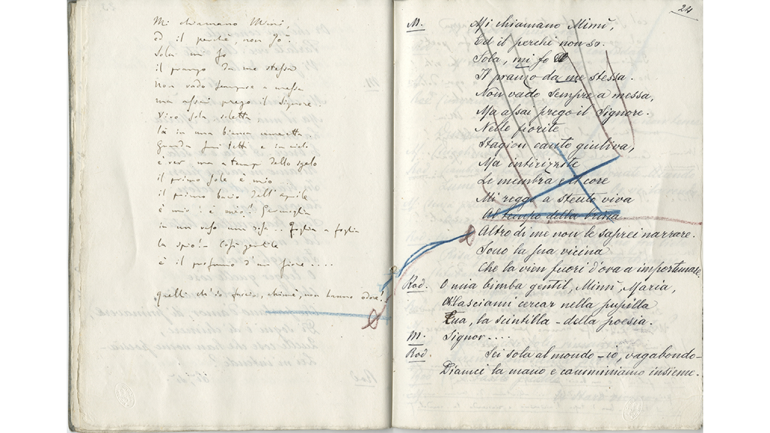 Mi chiamano Mimì,
ed il perchè non so.
Sola mi fo
il pranzo da me stessa
Non vado sempre a messa
ma assai prego il Signore
Vivo sola soletta
là in una bianca
Guardo sui tetti e in cielo
è ver, ma a tempo dello sgelo
il primo sole è mio
il primo bacio dell'aprile
è mio: è mio! Germoglia
in un vaso una rosa.. Foglia a foglia
la spio! Così gentile
è il profumo d'un fiore....
Quelli ch'io faccio, ahimè, non hanno odore!
24
M. Mi chiamano Mimì,
Ed il perchè non so.
Sola, mi fo
Il pranzo da me stessa.
Non vado sempre a messa,
Ma assai prego il Signore.
Nelle fiorite
Stagion canto giuliva,
Ma intirizzite
Le membra e il core
Mi reggo a stento viva
Al tempo della bruma
Altro di me non le saprei narrare.
Sono la sua vicina
Che la vien fuori d'ora a importunare.
Rod. O mia bimba gentil, Mimì, Maria,
lasciami cercar nella pupilla
Tua, la scintilla della poesia.
M. Signor....
Rod. Sei sola al mondo – io, vagabondo –
Dammi la mano e camminiamo insieme.